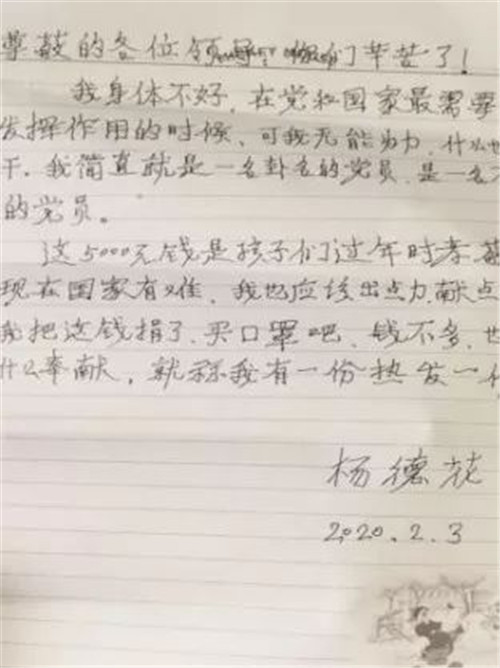 尊敬的各位领导，你们辛苦了！
我身体不好，在党和国家最需要
发挥作用的时候，可我无能为力，什么也
干，我简直就是一名卦名的党员，是一名不
的党员。
这5000元钱是孩子们过年时孝敬
现在国家有难，我也应该出点力，献点
能把这钱捐了，买口罩吧，钱不多，也
什么奉献，就称我有一份热发一份
杨德花
2020.2.3